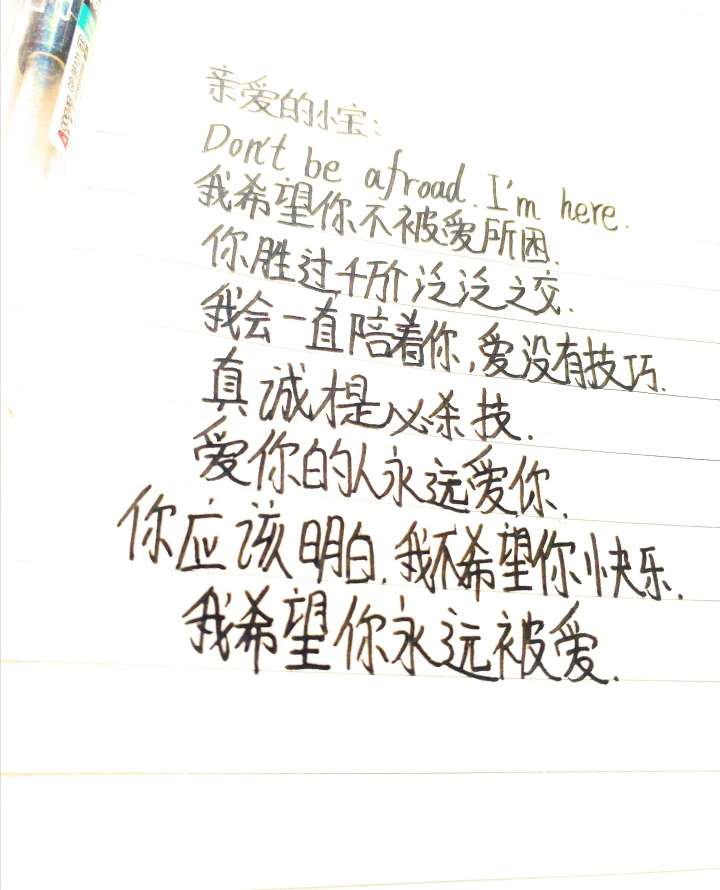 亲爱的小宝：
Don't be afroad. I'm here.
我希望你不被爱所困.
你胜过千阶泛泛之交.
我会一直陪着你，爱没有技巧.
真诚才是必杀技.
爱你的人永远爱你.
你应该明白.我不希望你快乐.
我希望你永远被爱.